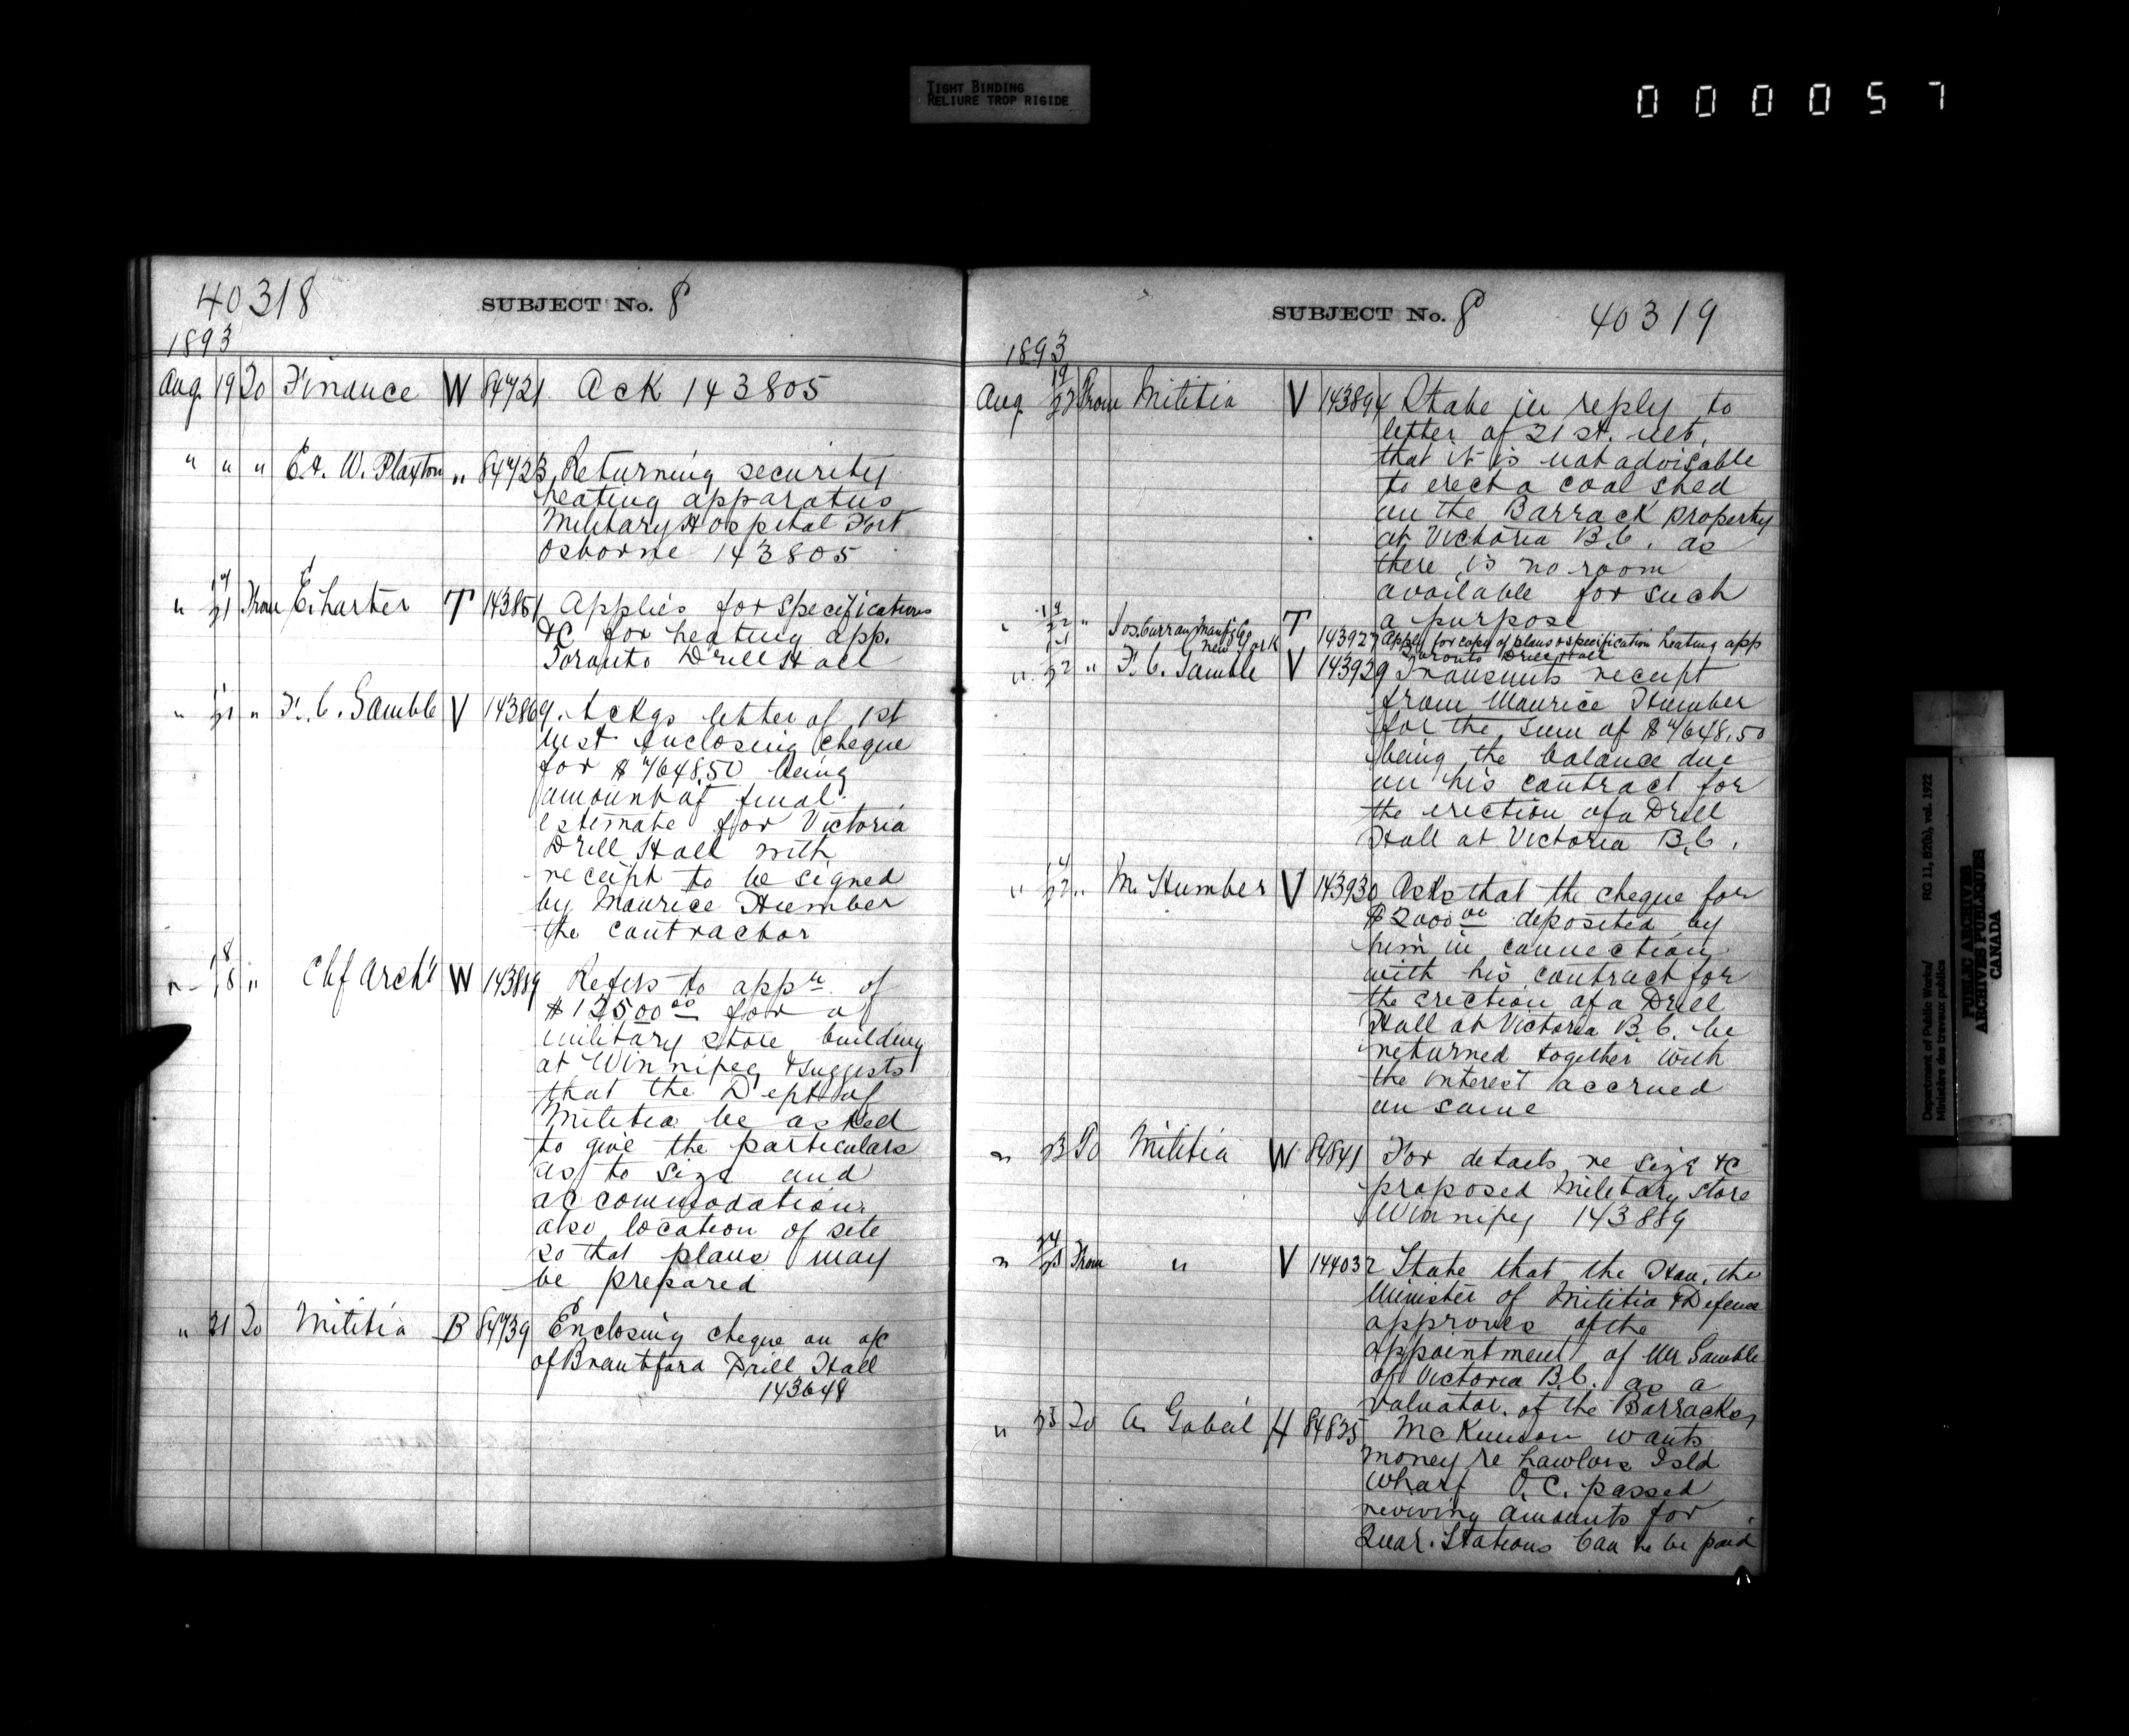 TIGHT BINDING
RELIURE TROP RIGIDE
000057
40318 SUBJECT No. 8
1893
Aug. 19 To Finance W 84721 Ack 143805
" " " W. Plaxton " 84723 Returning security
heating apparatus
Military Hospital Fort
Osborne 143805
" 21 From E. Charter T 143851 Applies for specifications
&c for heating app.
Toronto Drill Hall
" 21 " F. C. Gamble V 143869 Ackgs letter of 1st
inst enclosing cheque
for $ 7648.50 being
amount of final
estimate for Victoria
Drill Hall with
receipt to be signed
by Maurice Humber
the contractor
18
" 18 " Chf Archt W 143889 Refers to appn of
$ 12500 00 for a
military store building
at Winnipeg & suggests
that the Dept of
Militia be asked
to give the particulars
as to size and
accommodation
also location of site
so that plans may
be prepared
" 21 To Militia B 84739 Enclosing cheque on a/c
of Brantford Drill Hall
143648
SUBJECT No. 8 40319
1893
Aug. 19/22 From Militia V 143894 State in reply to
letter of 21st. ult.
that it is not advisable
to erect a coal shed
on the Barrack property
at Victoria B.C. as
there is no room
available for such
a purpose
" 22 " Jos. Curran Manfg Co New York T 143927 Apply for copy of plans & specification heating app
Toronto Drill Hall
" 22 " F. C. Gamble V 143929 Transmits receipt
from Maurice Humber
for the sum of $ 7648.50
being the balance due
on his contract for
the erection of a Drill
Hall at Victoria B.C.
" 14/22 " M. Humber V 143930 Asks that the cheque for
$ 2000 00 deposited by
him in connection
with his contract for
the erection of a Drill
Hall at Victoria B.C. be
returned together with
the interest accrued
on same
" 23 To Militia W 84841 For details re size &c
proposed Military Store
Winnipeg 143889
" From " V 144032 State that the Hon. the
Minister of Militia & Defence
approves of the
appointment of Mr Gamble
of Victoria B.C. as a
valuator of the Barracks
" 23 To A Gobeil H 84835 McKinnon wants
money re Lawlors Isld
Wharf O.C. passed
reviving amounts for
Quar. Stations Can he be paid
Department of Public Works/ RG 11, B2(b), vol. 1922
Ministère des travaux publics
PUBLIC ARCHIVES
ARCHIVES PUBLIQUES
CANADA